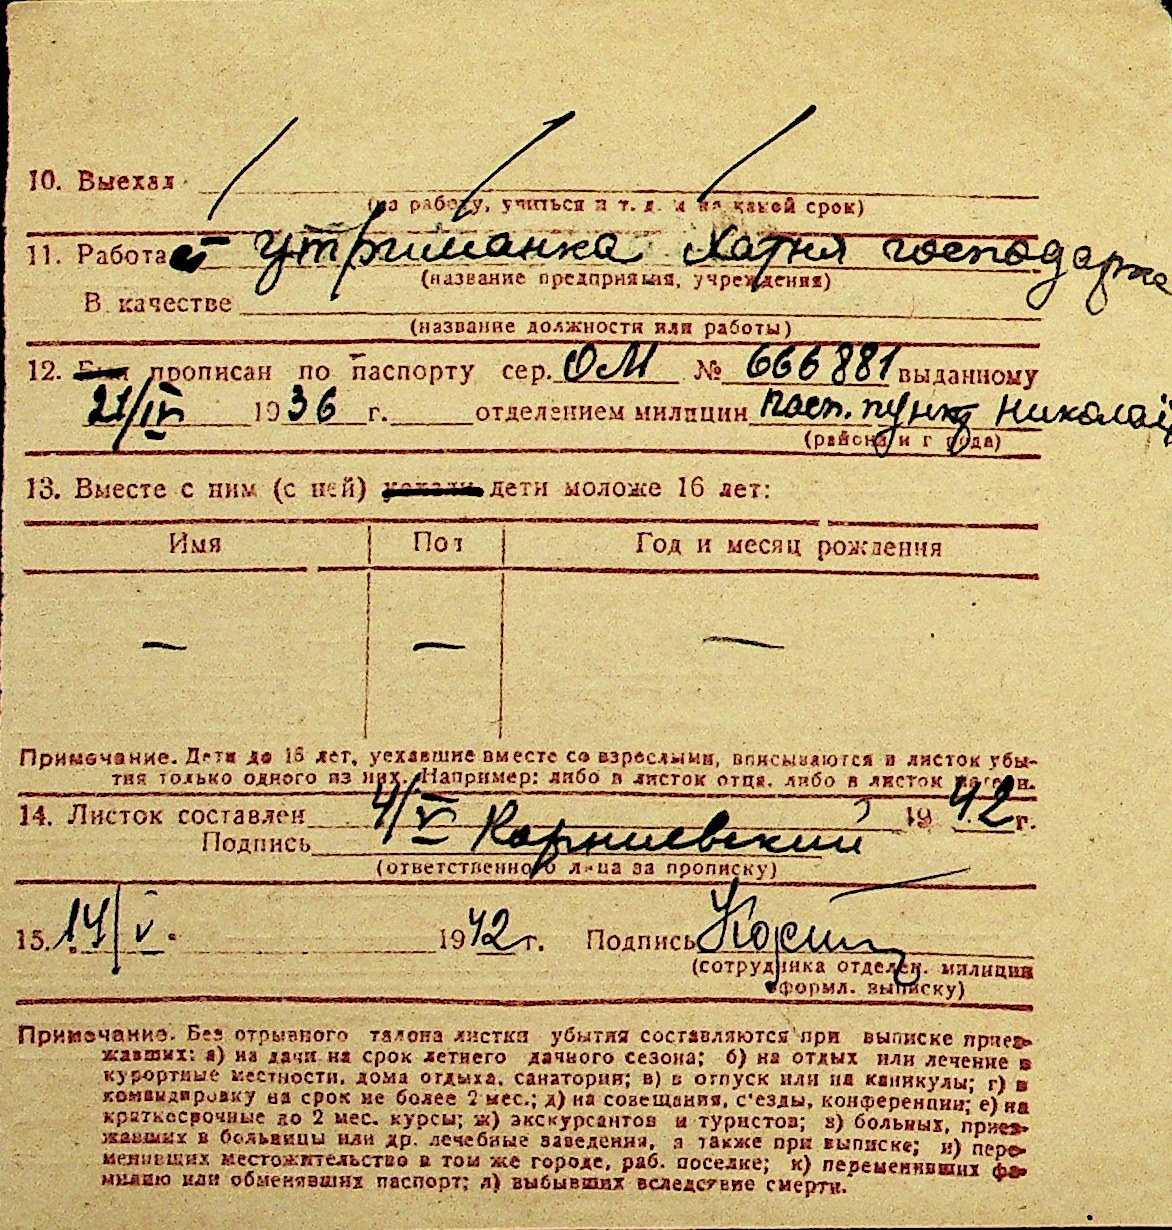 10. Выехал
(на работу, учиться и т. д. и на какой срок)
11. Работает утриманка хатня господарка
(название предприятия, учреждения)
В качестве
(название должности или работы)
12. Был прописан по паспорту сер. ОМ № 666881 выданному
21/IV 1936 г. отделением милиции пасп. пункт Николаїв
(района и города)
13. Вместе с ним (с ней) уехали дети моложе 16 лет:
Имя Пол Год и месяц рождения
— — —
Примечание. Дети до 16 лет, уехавшие вместе со взрослыми, вписываются в листок убы-
тия только одного из них. Например: либо в листок отца, либо в листок матери.
14. Листок составлен 4/V 1942 г.
Подпись Корниевский
(ответственного лица за прописку)
15. 14/V 1942 г. Подпись
(сотрудника отделен. милиции
оформл. выписку)
Примечание. Без отрывного талона листки убытия составляются при выписке приез-
жавших: а) на дачи на срок летнего дачного сезона; б) на отдых или лечение в
курортные местности, дома отдыха, санатории; в) в отпуск или на каникулы; г) в
командировку на срок не более 2 мес.; д) на совещания, с'езды, конференции; е) на
краткосрочные до 2 мес. курсы; ж) экскурсантов и туристов; з) больных, приез-
жавших в больницы или др. лечебные заведения, а также при выписке; и) пере-
менивших местожительство в том же городе, раб. поселке; к) переменивших фа-
милию или обменявших паспорт; л) выбывших вследствие смерти.